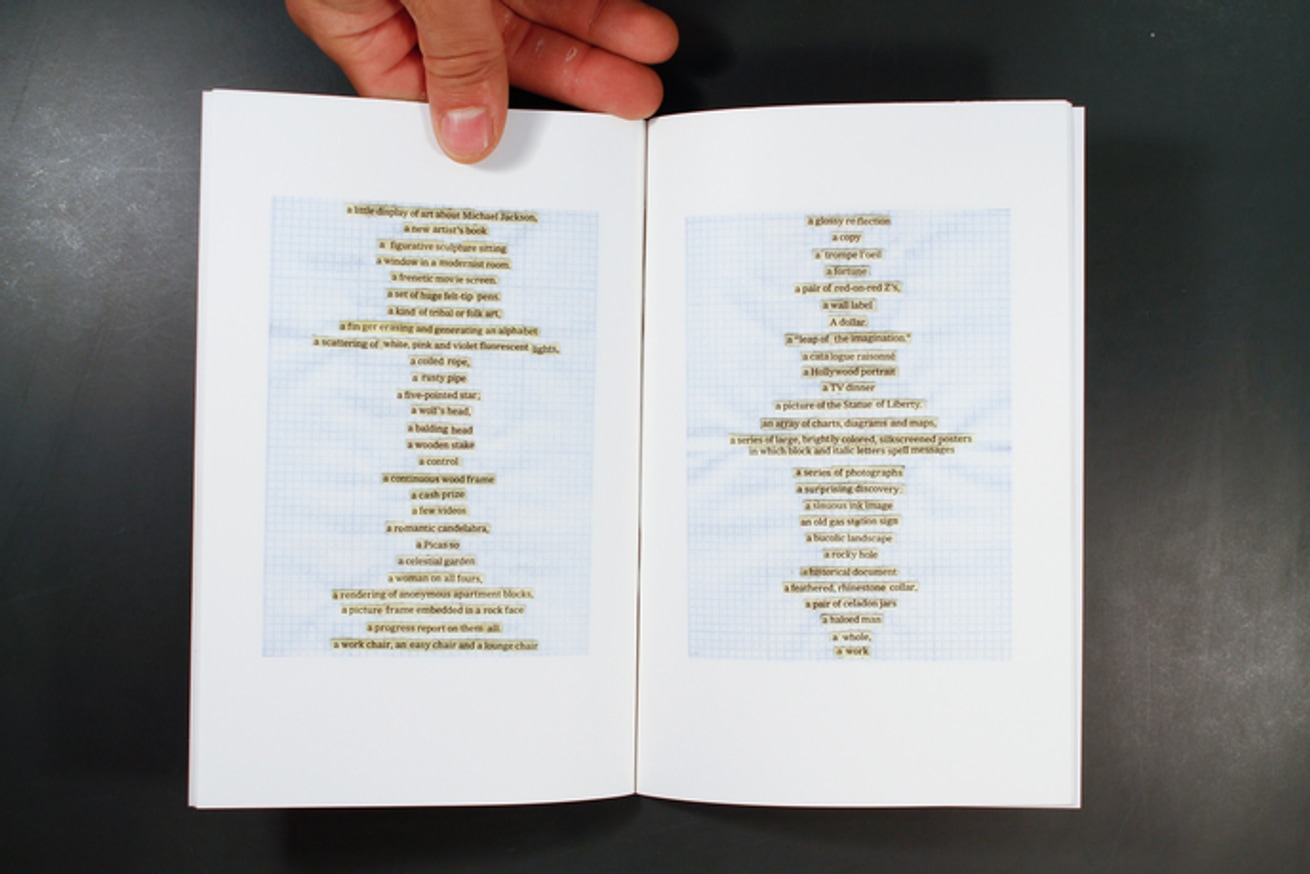 a little display of art about Michael Jackson,
a new artist's book
a figurative sculpture sitting
a window in a modernist room.
a frenetic movie screen.
a set of huge felt-tip pens.
a kind of tribal or folk art,
a finger erasing and generating an alphabet
a scattering of white, pink and violet fluorescent lights,
a coiled rope,
a rusty pipe
a five-pointed star;
a wolf's head,
a balding head
a wooden stake
a control
a continuous wood frame
a cash prize
a few videos
a romantic candelabra,
a Picasso
a celestial garden
a woman on all fours,
a rendering of anonymous apartment blocks,
a picture frame embedded in a rock face
a progress report on them all.
a work chair, an easy chair and a lounge chair
a glossy reflection
a copy
a trompe l'oeil
a fortune
a pair of red-on-red Z's,
a wall label
A dollar,
a "leap of the imagination."
a catalogue raisonné
a Hollywood portrait
a TV dinner
a picture of the Statue of Liberty.
an array of charts, diagrams and maps,
a series of large, brightly colored, silkscreened posters
in which block and italic letters spell messages
a series of photographs
a surprising discovery:
a sinuous ink image
an old gas station sign
a bucolic landscape
a rocky hole
a historical document
a feathered, rhinestone collar,
a pair of celadon jars
a haloed man
a whole,
a work